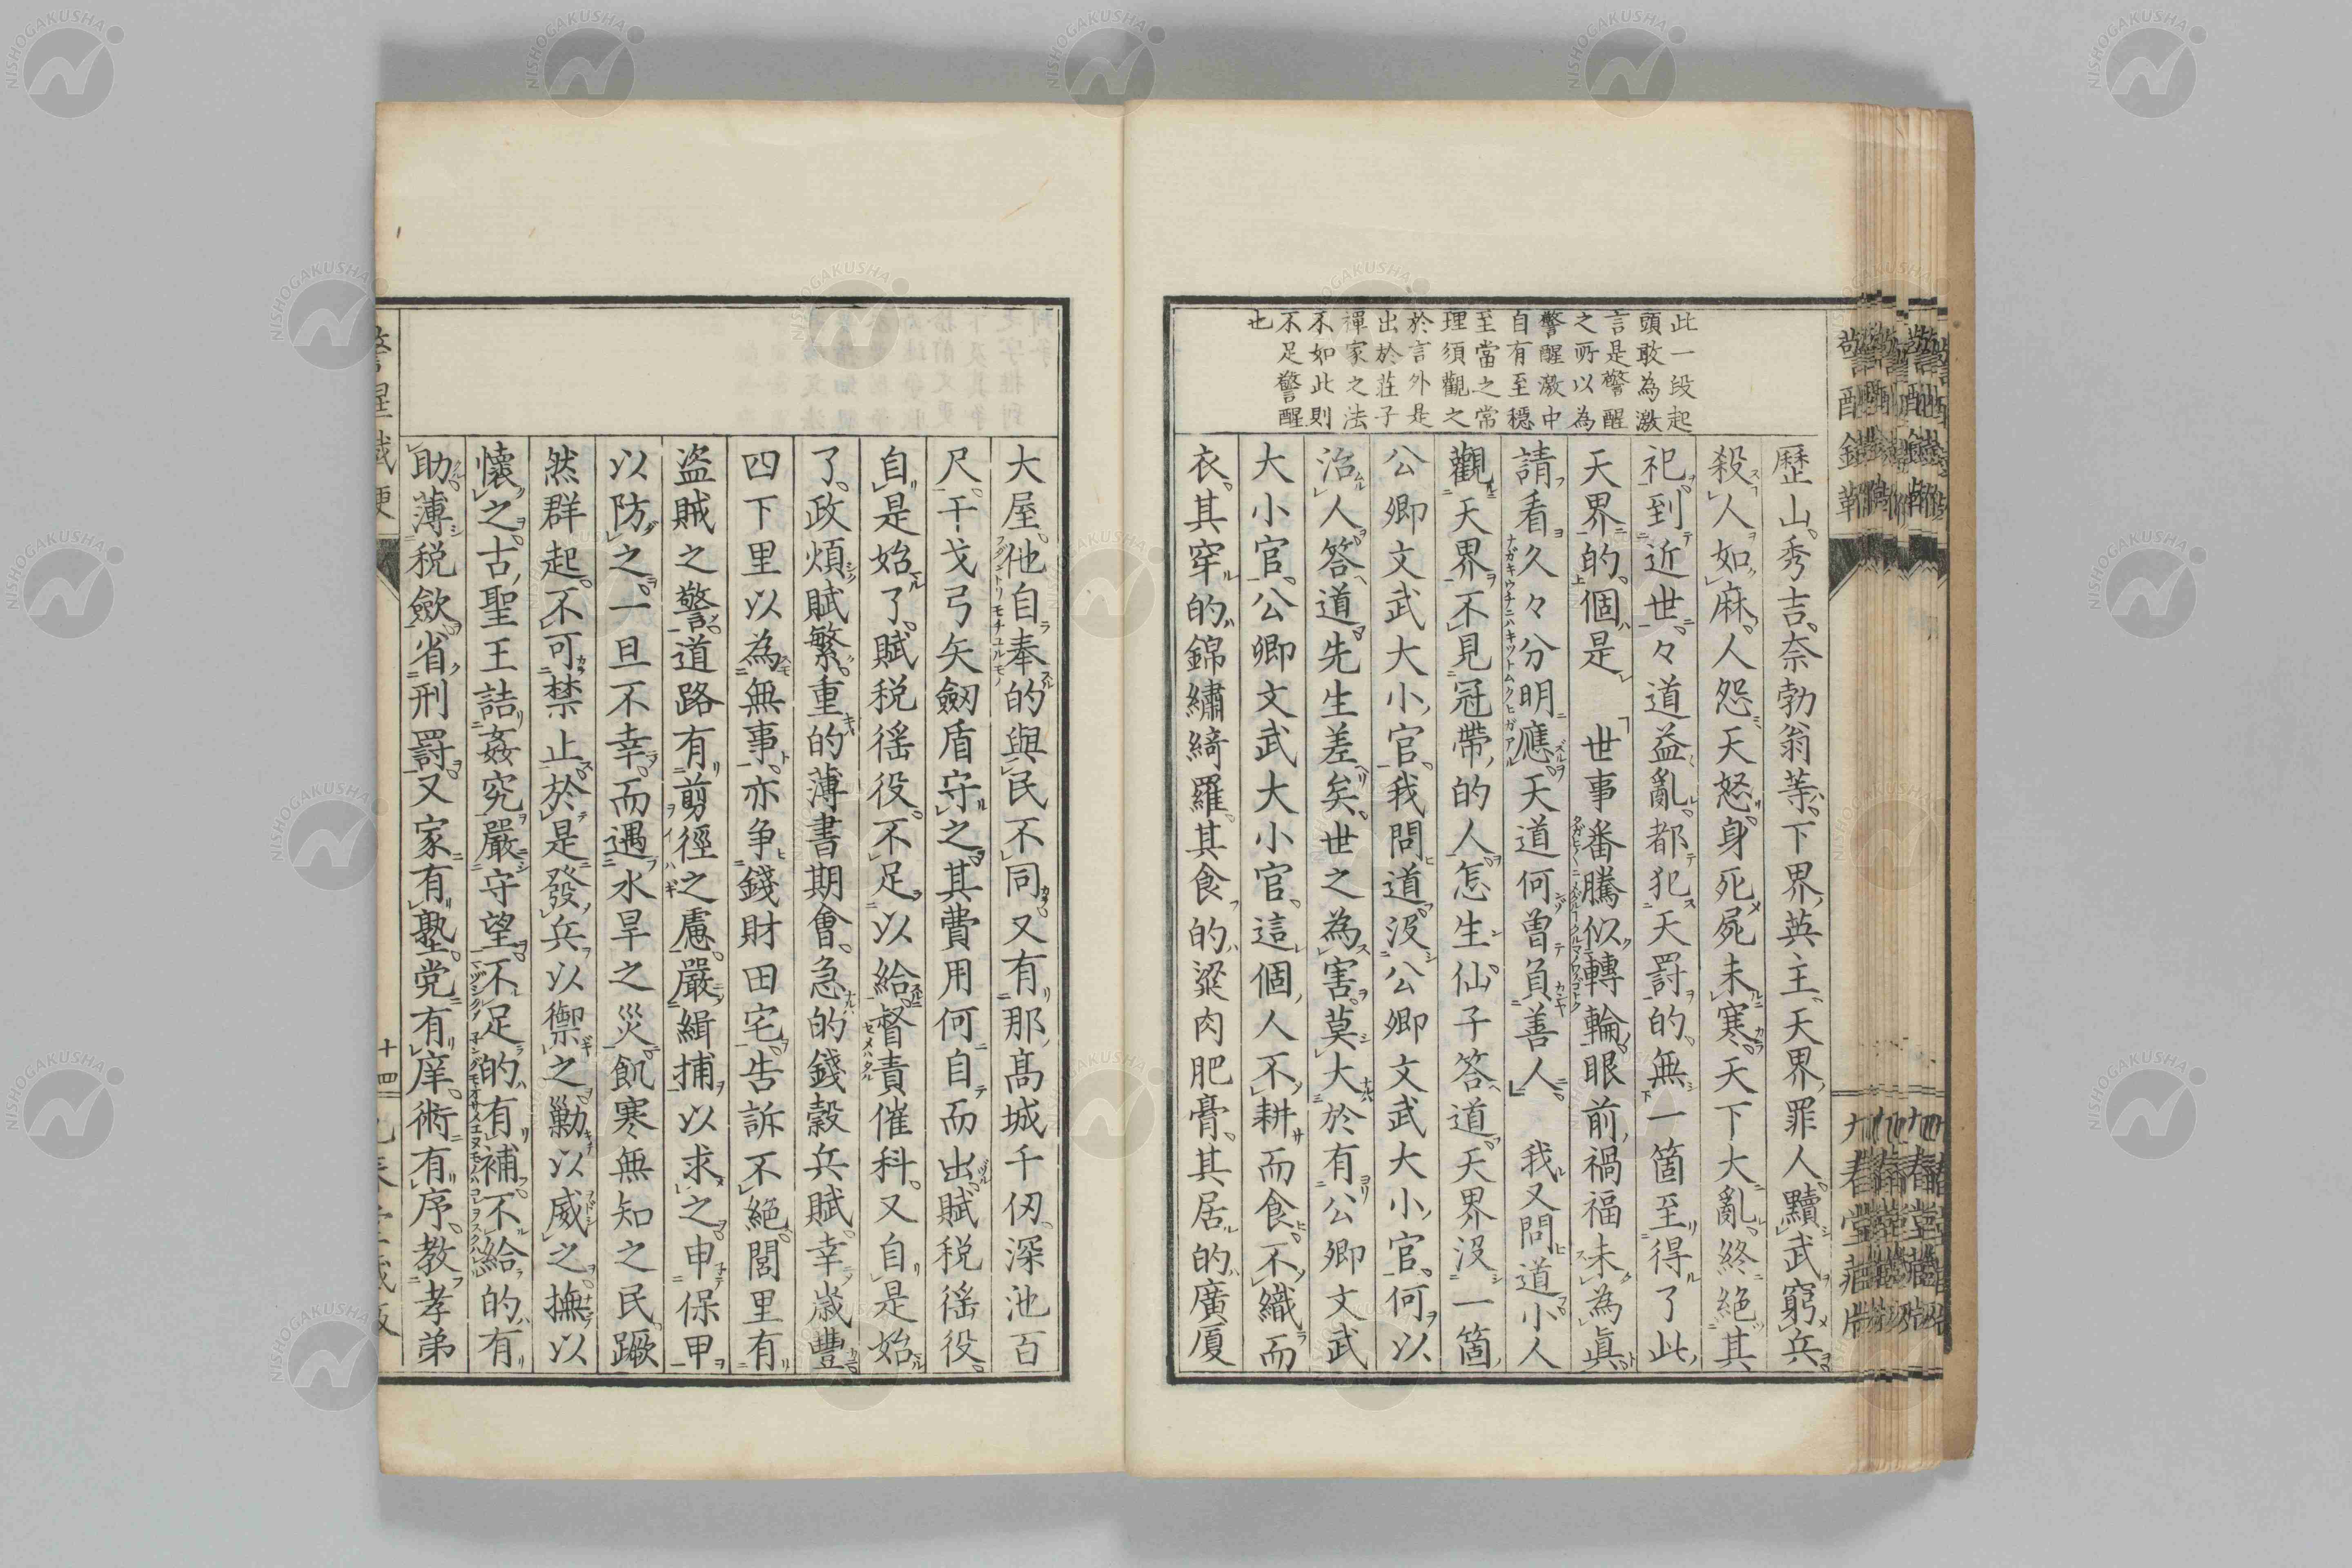 此一段起
頭敢為激
言是警醒
之所以為
警醒激中
自有至穏
至當之常
理須觀之
於言外是
出於荘子
禪家之法
不如此則
不足警醒
也
歴山。秀吉。奈勃翁等。下界英主、天界罪人。黷武窮兵
殺人如麻。人怨天怒。身死屍未寒。天下大亂。終絶其
祀。到近世。々道益亂。都犯天罰的。無一箇至得了此
天界的。個是 「世事番騰似轉輪。眼前禍福未為眞。
請看久々分明應。天道何曽負善人」 我又問道小人
觀天界不見冠帶的人。怎生。仙子答道。天界没一箇
公卿文武大小官。我問道。没公卿文武大小官。何以
治人。答道。先生差矣。世之為害。莫大於有公卿文武
大小官。公卿文武大小官。這個人不耕而食。不織而
衣。其穿的錦繡綺羅。其食的粱肉肥膏。其居的廣厦
大屋。他自奉的與民不同。又有那髙城千仭。深池百
尺。干戈弓矢劔盾守之。其費用何自而出。賦税徭役。
自是始了。賦税徭役。不足以給。督責催科。又自是始
了。政煩賦繁。重的薄書期會。急的錢穀兵賦。幸嵗豐
四下里以為無事。亦争錢財田宅。告訴不絶。閭里有
盗賊之警。道路有剪徑之慮。嚴緝捕以求之。申保甲
以防之。一旦不幸。而遇水旱之災。飢寒無知之民。蹶
然群起。不可禁止。於是發兵以禦之。勦以威之。撫以
懷之。古聖王詰姦究。嚴守望。不足的有補。不給的有
助。薄税斂。省刑罰。又家有塾。党有庠。術有序。教孝弟
十四